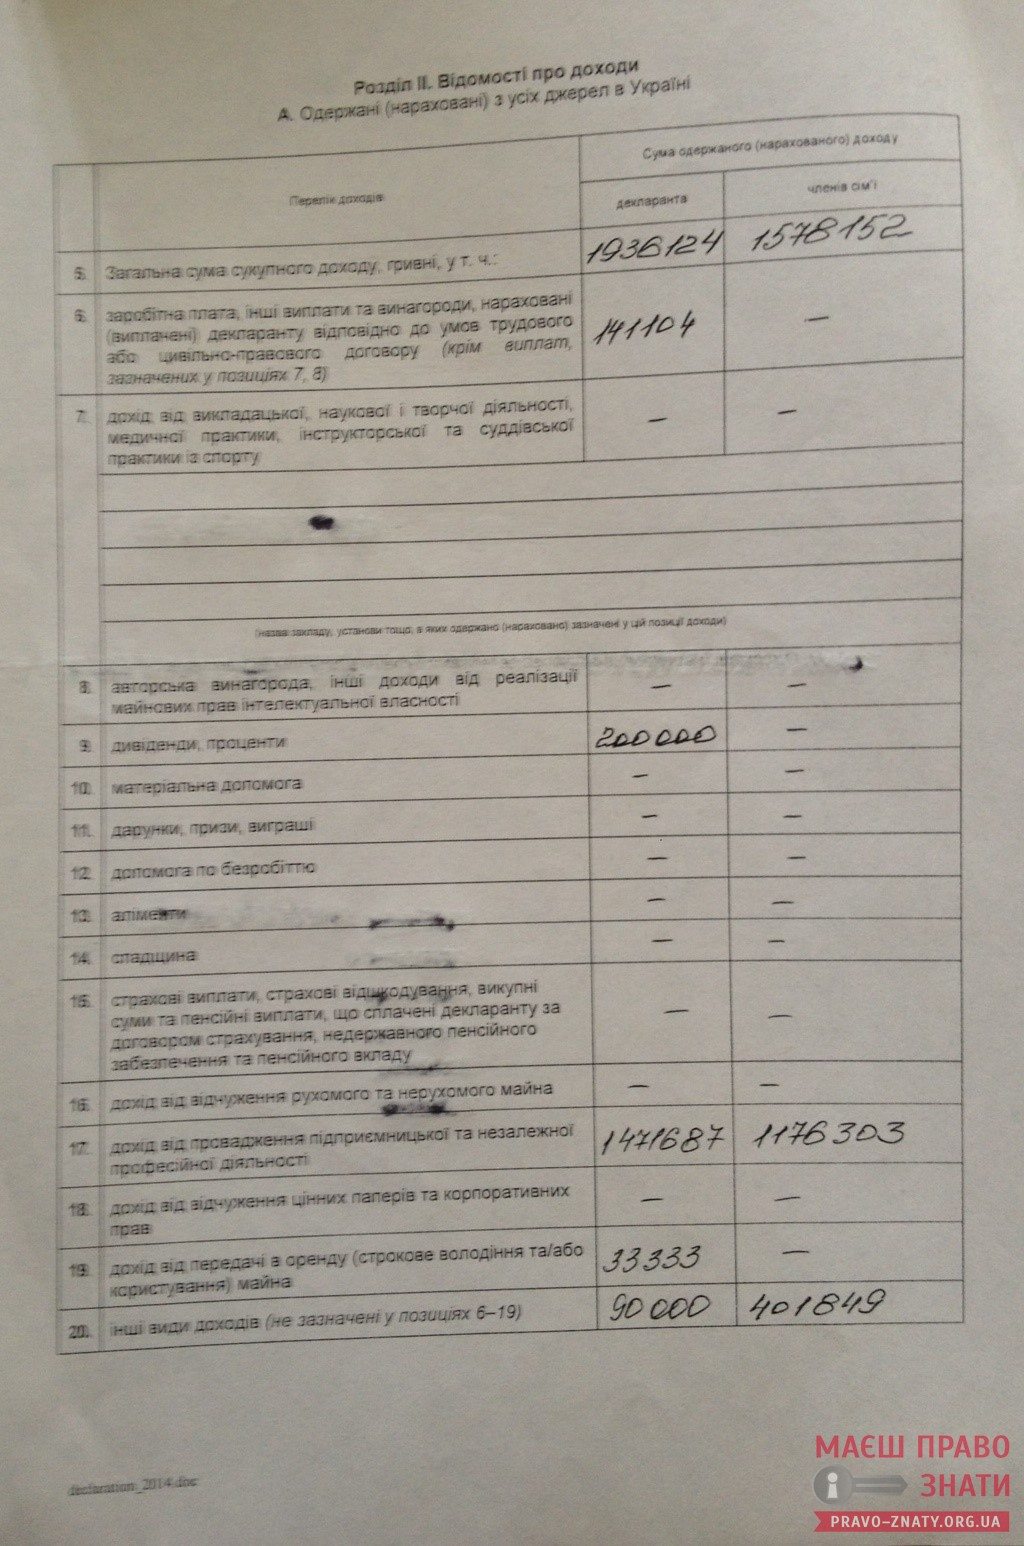 Розділ II. Відомості про доходи
А. Одержані (нараховані) з усіх джерел в Україні
Перелік доходів
Сума одержаного (нарахованого) доходу
декларанта
членів сім'ї
5. Загальна сума сукупного доходу, гривні, у т. ч.: 1936124 1578152
6. заробітна плата, інші виплати та винагороди, нараховані
(виплачені) декларанту відповідно до умов трудового
або цивільно-правового договору (крім виплат,
зазначених у позиціях 7, 8)
141104 —
7. дохід від викладацької, наукової і творчої діяльності,
медичної практики, інструкторської та суддівської
практики із спорту
— —
(назва закладу, установи тощо, в яких одержано (нараховано) зазначені у цій позиції доходи)
8. авторська винагорода, інші доходи від реалізації
майнових прав інтелектуальної власності
— —
9. дивіденди, проценти 200000 —
10. матеріальна допомога — —
11. дарунки, призи, виграші — —
12. допомога по безробіттю — —
13. аліменти — —
14. спадщина — —
15. страхові виплати, страхові відшкодування, викупні
суми та пенсійні виплати, що сплачені декларанту за
договором страхування, недержавного пенсійного
забезпечення та пенсійного вкладу
— —
16. дохід від відчуження рухомого та нерухомого майна — —
17. дохід від провадження підприємницької та незалежної
професійної діяльності
1471687 1176303
18. дохід від відчуження цінних паперів та корпоративних
прав
— —
19. дохід від передачі в оренду (строкове володіння та/або
користування) майна
33333 —
20. інші види доходів (не зазначені у позиціях 6–19) 90000 401849
declaration_2014.doc
МАЄШ ПРАВО
ЗНАТИ
PRAVO-ZNATY.ORG.UA